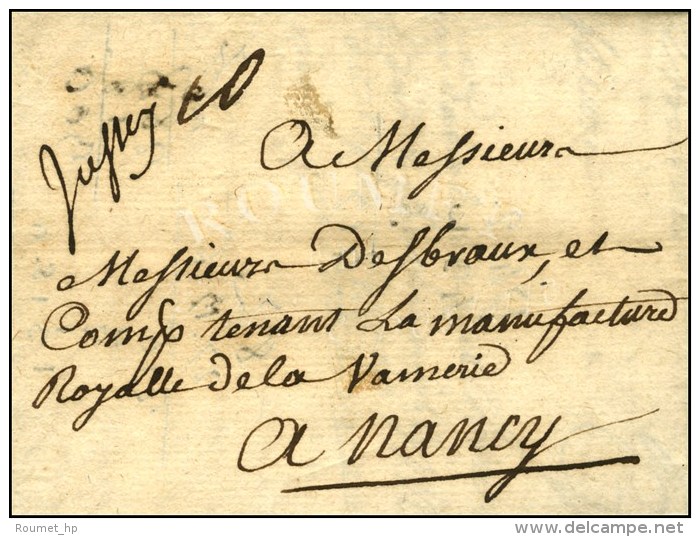 Jussey 10
A Messieurs
Messieurs Desbraux, et
Comp tenant La manufacture
Royalle de la Vannerie
a Nancy
ROUMET
Roumet_hp
delcampe.net